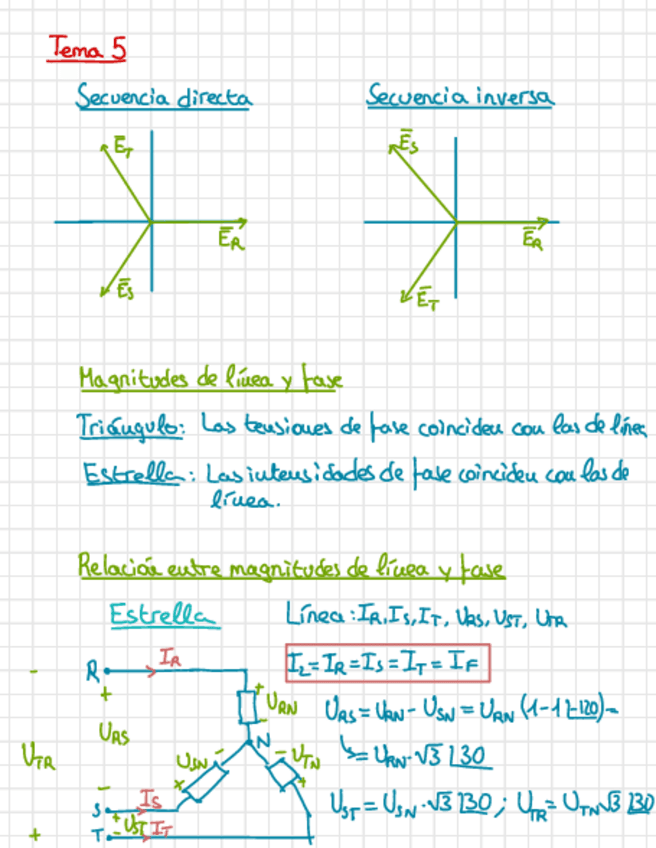 Tema 5
Secuencia directa
Secuencia inversa
E̅T
E̅R
E̅S
E̅S
E̅R
E̅T
Magnitudes de línea y fase
Triángulo: Las tensiones de fase coinciden con las de línea
Estrella: Las intensidades de fase coinciden con las de
línea.
Relación entre magnitudes de línea y fase
Estrella
Línea: IR, IS, IT, URS, UST, UTR
IL = IR = IS = IT = IF
- R IR
+ + URN
URS -
URS = URN - USN = URN (1-1∠-120) =
N
UTR USN - - UTN
↳ = URN·√3 ∠30
- + +
S IS
UST = USN·√3 ∠30 ; UTR = UTN √3 ∠30
+ UST
+ T - IT